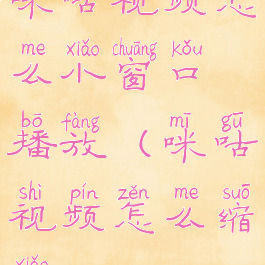 咪咕视频怎
me xiǎo chuāng kǒu
么小窗口
bō fàng mī gū
播放（咪咕
shì pín zěn me suō
视频怎么缩
xiǎo